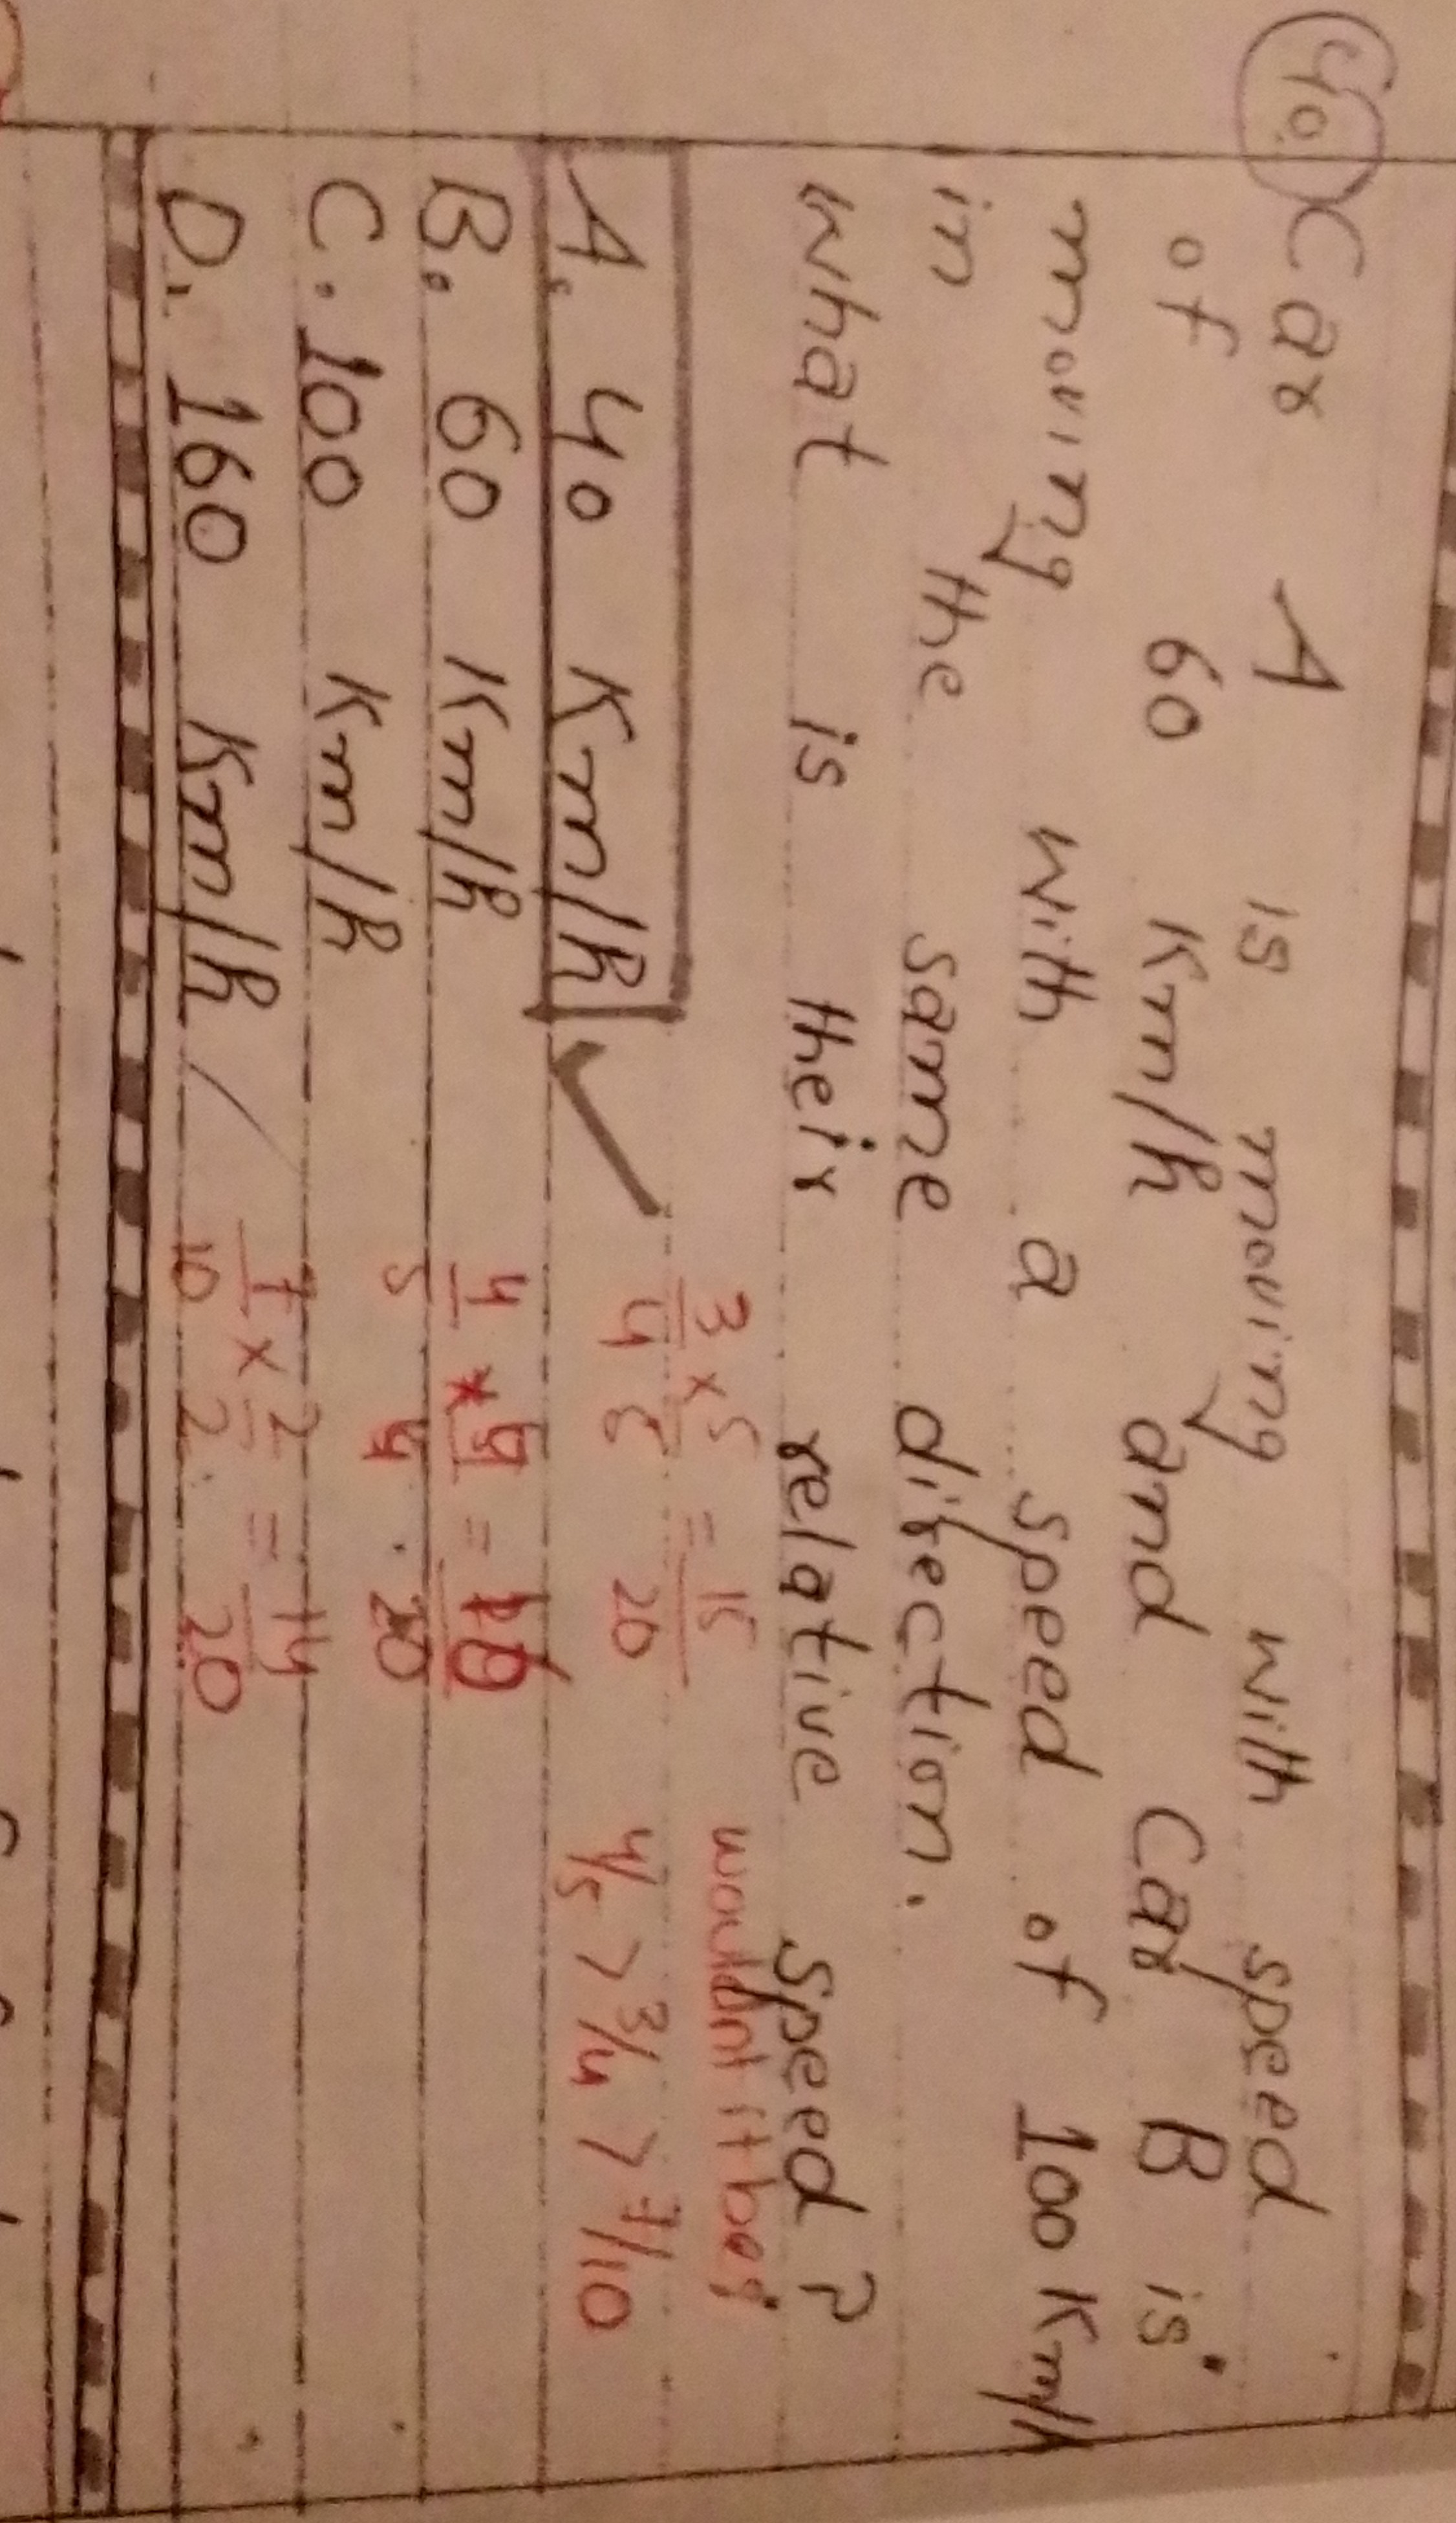 40. Car A is moving with speed
of 60 Km/h and Car B is
moving with a speed of 100 Km/h
in the same direction.
What is their relative speed?
A. 40 Km/h
B. 60 Km/h
C. 100 Km/h
D. 160 Km/h
3/4 × 5/5 = 15/20
4/5 × 4/4 = 16/20
7/10 × 2/2 = 14/20
wouldnt it be:
4/5 > 3/4 > 7/10